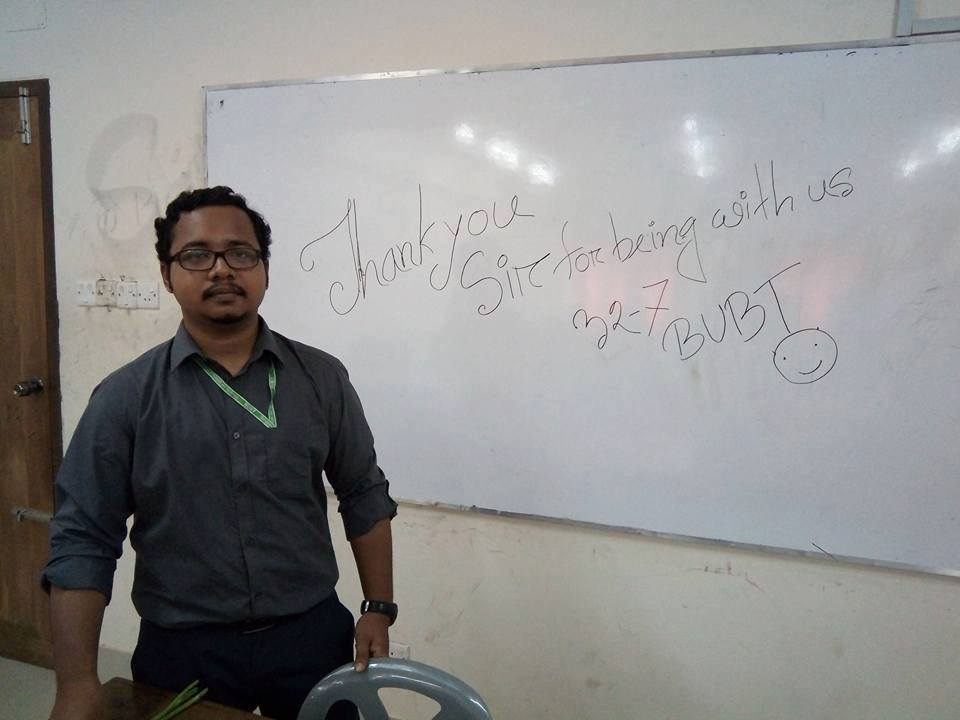 Thank you
Sir for being with us
32-7 BUBT